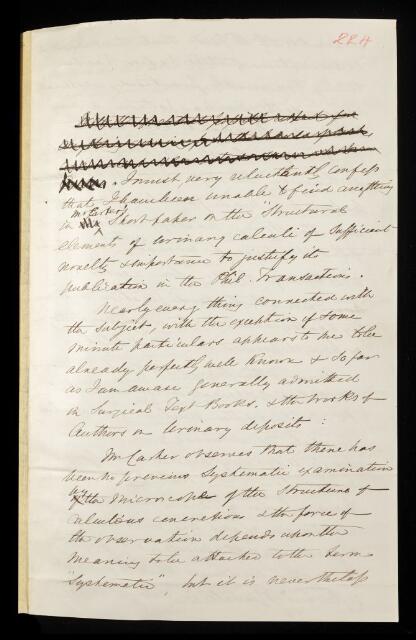 224
I must very reluctantly confess
that I have been unable to find anything
in Mr Carter's short paper on the "Structural
elements of Urinary calculi of sufficient
novelty & importance to justify its
publication in the Phil. Transactions.
Nearly every thing connected with
the subject, with the exception of some
minute particulars appears to me to be
already perfectly well known & so far
as I am aware generally admitted
in Surgical Text Books, & the Works of
Authors on Urinary deposits :
Mr Carter observes that there has
been no previous systematic examination
by the microscope of the structure of
calculous concretions & the force of
the observation depends upon the
meaning to be attached to the term
"Systematic", but it is nevertheless